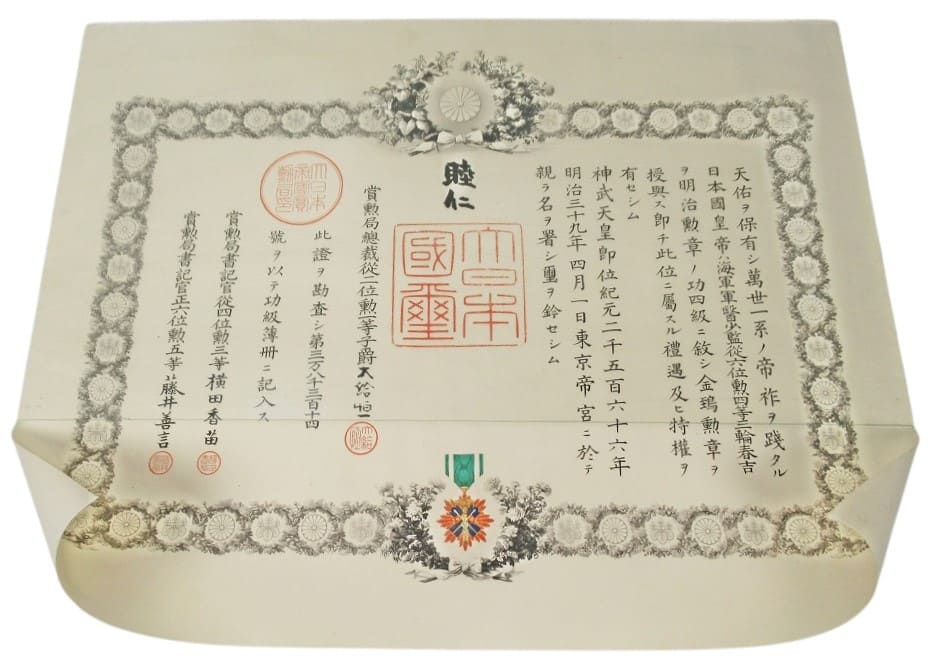 天佑ヲ保有シ萬世一系ノ帝祚ヲ踐タル
日本國皇帝ハ海軍軍醫少監從六位勲四等三輪春吉
ヲ明治勲章ノ功四級ニ敘シ金鵄勲章ヲ
授與ス即チ此位ニ屬スル禮遇及ヒ特權ヲ
有セシム
神武天皇即位紀元二千五百六十六年
明治三十九年四月一日東京帝宮ニ於テ
親ラ名ヲ署シ璽ヲ鈐セシム
睦仁
大日本
國璽
賞勲局總裁從二位勲一等子爵大給恒
大日本
帝國賞
勲局印
此證ヲ勘査シ第三万八千三百十四
號ヲ以テ功級簿冊ニ記入ス
賞勲局書記官從四位勲三等横田香苗
賞勲局書記官正六位勲五等藤井善言